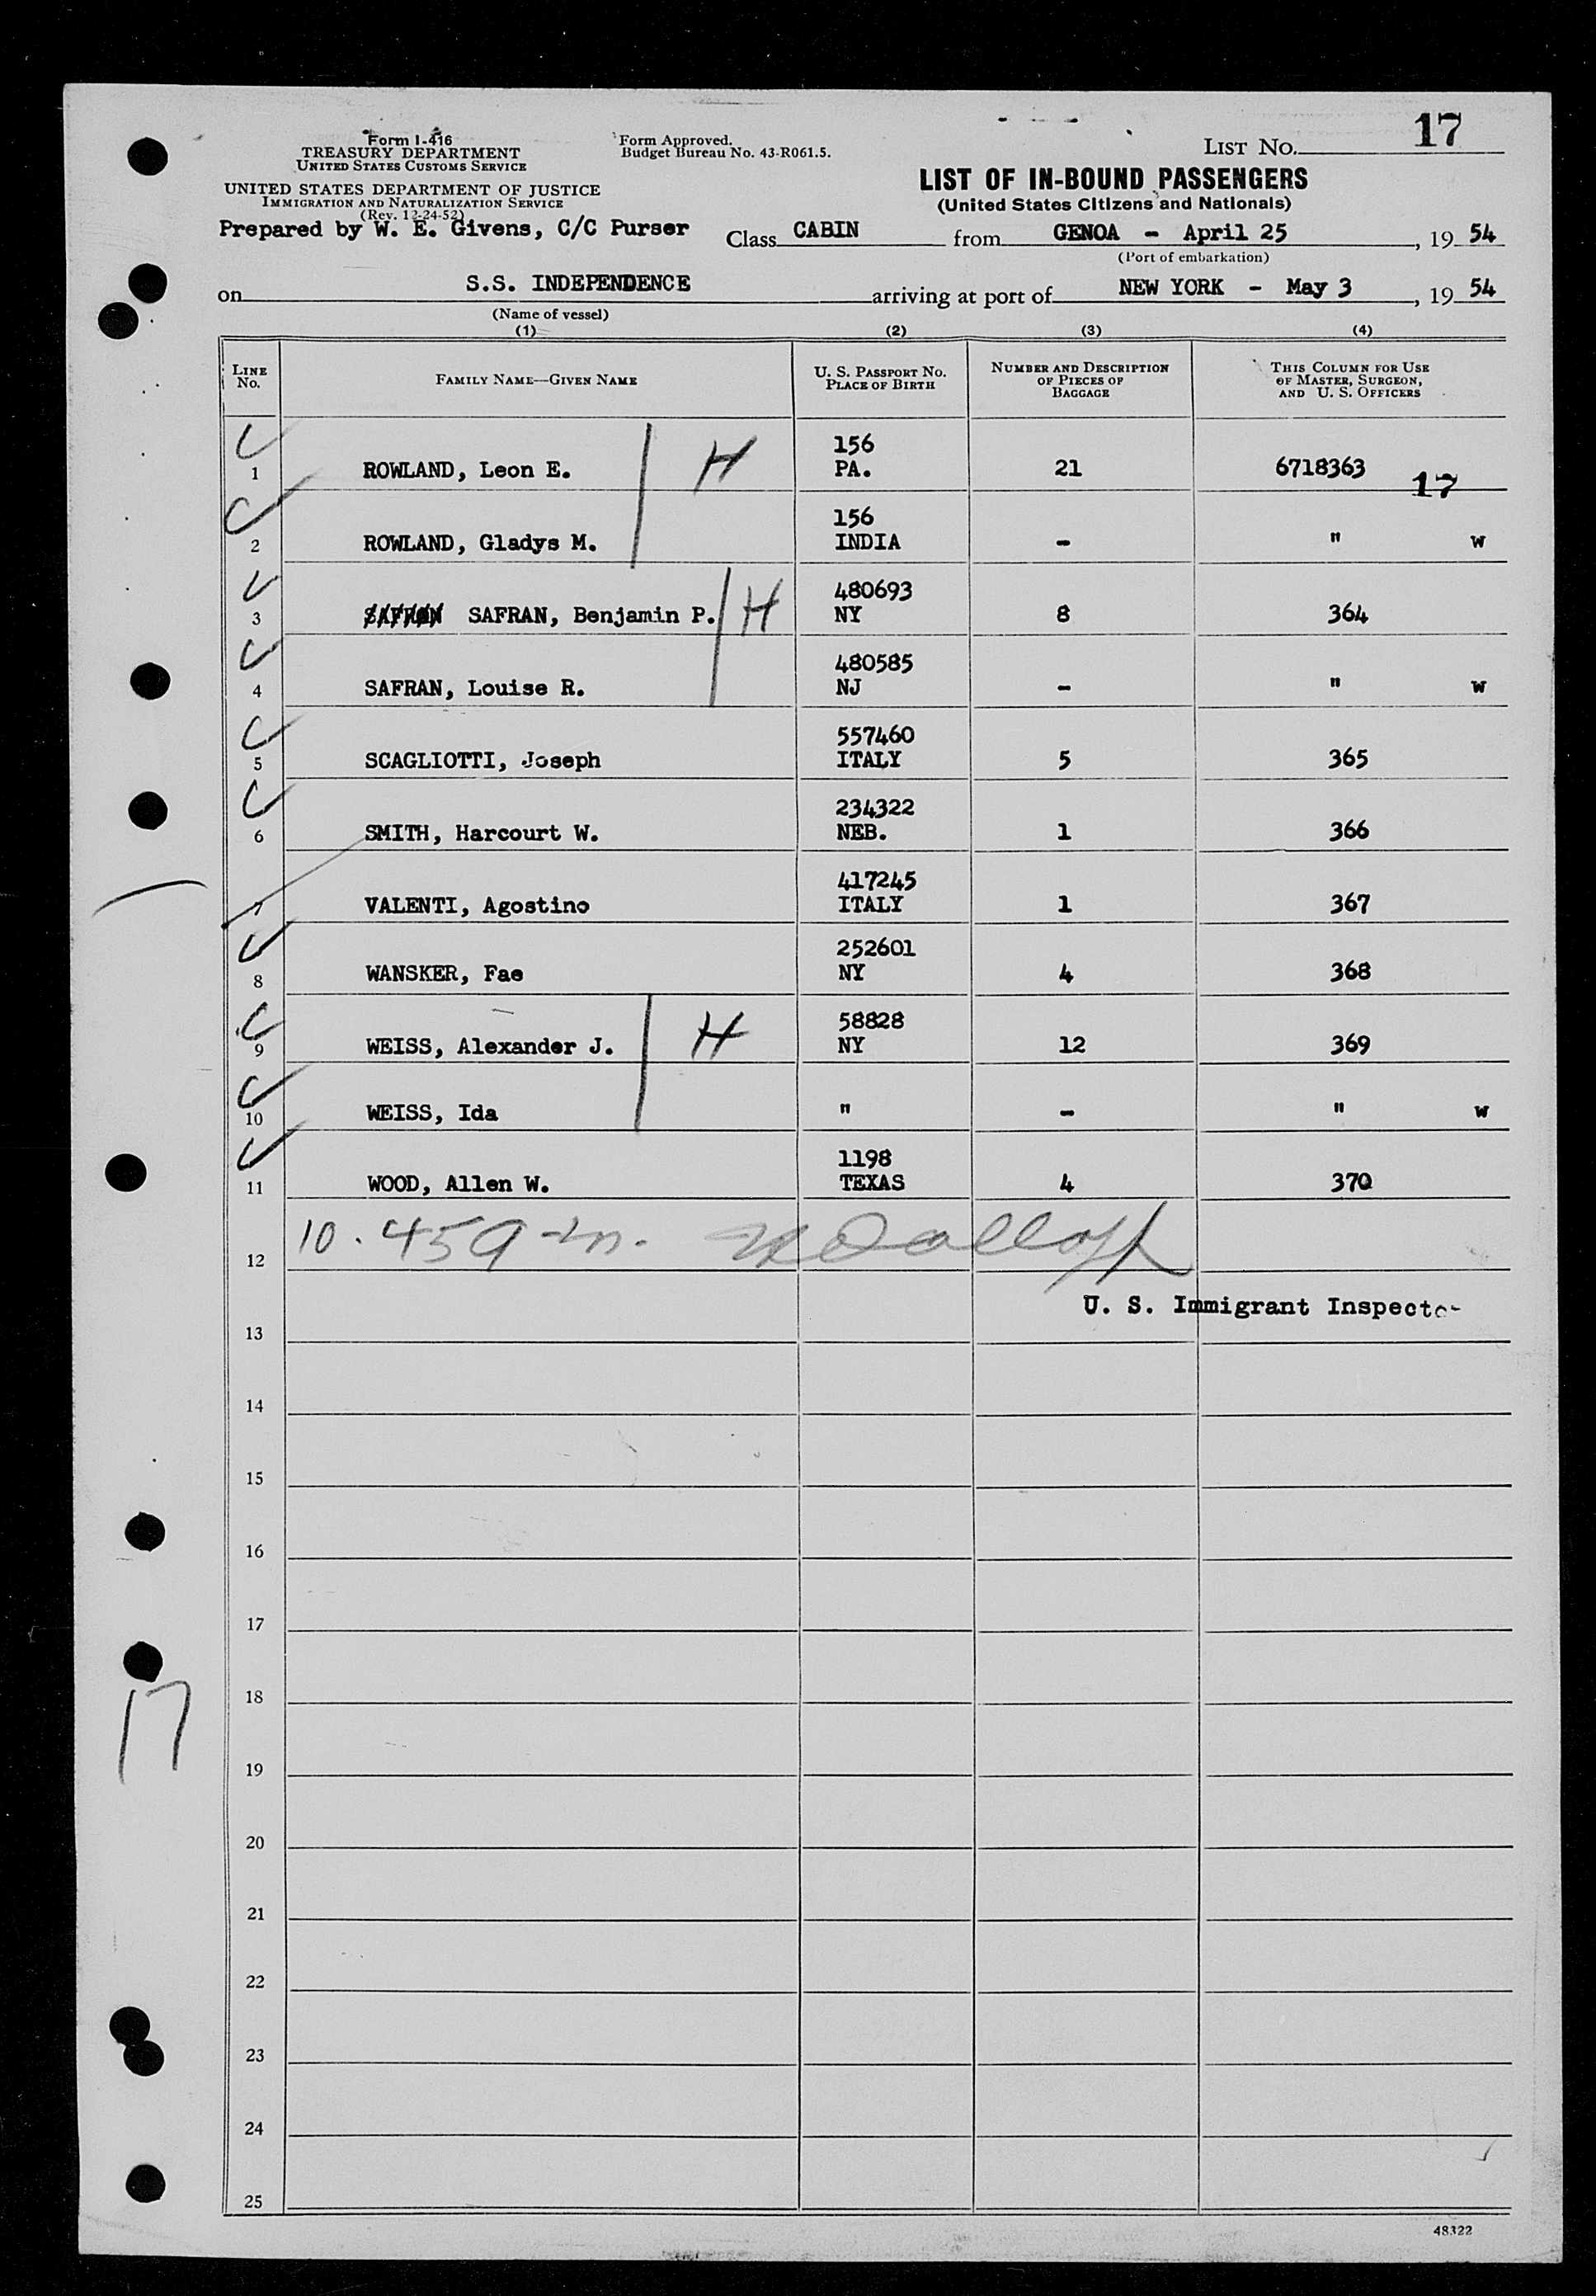 Form I-416
TREASURY DEPARTMENT
UNITED STATES CUSTOMS SERVICE
UNITED STATES DEPARTMENT OF JUSTICE
IMMIGRATION AND NATURALIZATION SERVICE
(Rev. 12-24-52)
Form Approved.
Budget Bureau No. 43-R061.5.
LIST No. 17
LIST OF IN-BOUND PASSENGERS
(United States Citizens and Nationals)
Prepared by W. E. Givens, C/C Purser Class CABIN from GENOA - April 25, 19 54
(Port of embarkation)
on S.S. INDEPENDENCE arriving at port of NEW YORK - May 3, 19 54
(Name of vessel)
(1) (2) (3) (4)
LINE No. FAMILY NAME—GIVEN NAME U. S. PASSPORT No. PLACE OF BIRTH NUMBER AND DESCRIPTION OF PIECES OF BAGGAGE THIS COLUMN FOR USE OF MASTER, SURGEON, AND U. S. OFFICERS
156
1 ROWLAND, Leon E. H PA. 21 6718363 17
156
2 ROWLAND, Gladys M. INDIA - " W
480693
3 SAFRON SAFRAN, Benjamin P. H NY 8 364
480585
4 SAFRAN, Louise R. NJ - " W
557460
5 SCAGLIOTTI, Joseph ITALY 5 365
234322
6 SMITH, Harcourt W. NEB. 1 366
417245
7 VALENTI, Agostino ITALY 1 367
252601
8 WANSKER, Fae NY 4 368
58828
9 WEISS, Alexander J. H NY 12 369
10 WEISS, Ida " - " W
1198
11 WOOD, Allen W. TEXAS 4 370
12 10. 459-m.
U. S. Immigrant Inspector
13
14
15
16
17
18
17
19
20
21
22
23
24
25
48322